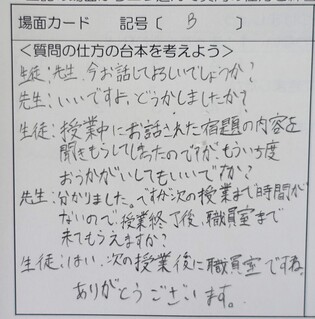 場面カード 記号〔 B 〕
<質問の仕方の台本を考えよう>
生徒:先生、今お話してよろしいでしょうか?
先生:いいですよ、どうかしましたか?
生徒:授業中にお話された宿題の内容を
聞きもらしてしまったのですが、もういち度
おうかがいしてもいいですか?
先生:分かりました。ですが次の授業まで時間が
ないので、授業終了後、職員室まで
来てもらえますか?
生徒:はい、次の授業後に職員室ですね。
ありがとうございます。